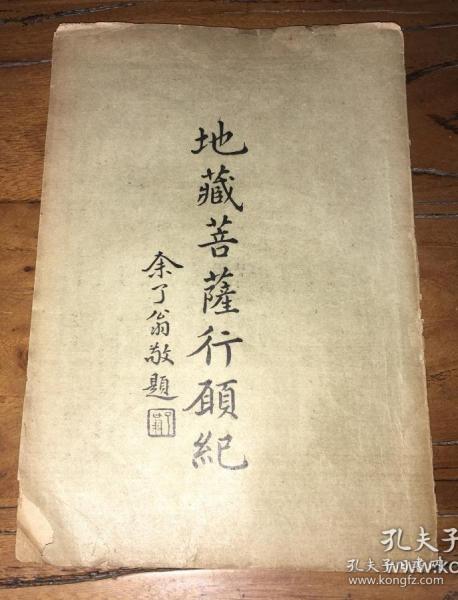 地藏菩薩行願紀
余了翁敬題
孔夫子
www.ko
孔夫子旧书网
www.kongfz.com